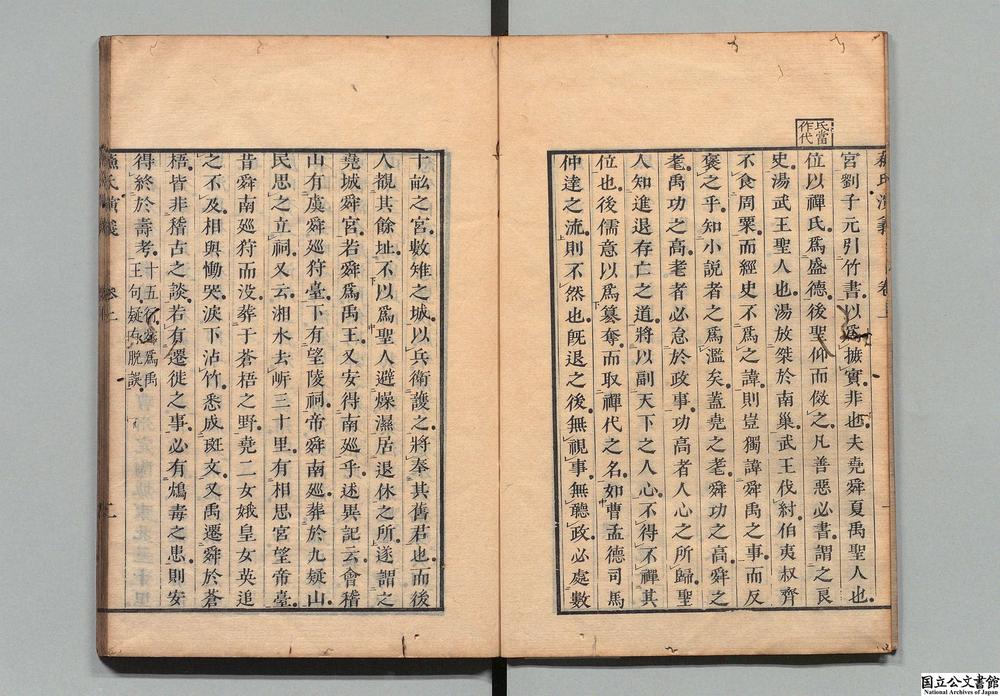 氏當
作代
宮劉子元引竹書以爲摭實非也夫堯舜夏禹聖人也
位以禪氏爲盛德後聖仰而倣之凡善惡必書謂之良
史湯武王聖人也湯放桀於南巢武王伐紂伯夷叔齊
不食周粟而經史不爲之諱則豈獨諱舜禹之事而反
褒之乎知小說者之爲濫矣蓋堯之老舜功之高舜之
老禹功之高老者必怠於政事功高者人心之所歸聖
人知進退存亡之道將以副天下之人心不得不禪其
位也後儒意以爲篡奪而取禪代之名如曹孟德司馬
仲達之流則不然也旣退之後無視事無聽政必處數
十畝之宮數雉之城以兵衛護之將奉其舊君也而後
人觀其餘址不以爲聖人避燥濕居退休之所遂謂之
堯城舜宮若舜爲禹王又安得南廵乎述異記云會稽
山有虞舜廵狩臺下有望陵祠帝舜南廵葬於九疑山
民思之立祠又云湘水去岍三十里有相思宮望帝臺
昔舜南廵狩而没葬于蒼梧之野堯二女娥皇女英追
之不及相與慟哭淚下沾竹悉成斑文又禹遷舜於蒼
梧皆非稽古之談若有遷徙之事必有鴆毒之患則安
得終於壽考十五行若爲禹
王句疑有脫誤
蘇氏演義
卷上
二
国立公文書館
National Archives of Japan